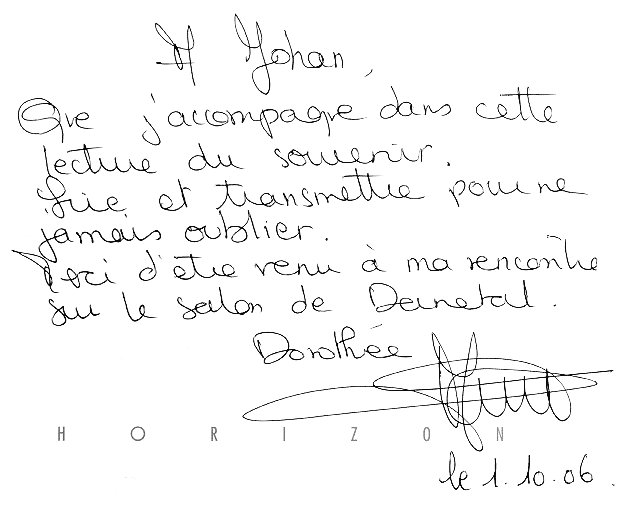 A Johan,
Que j'accompagne dans cette
lecture du souvenir.
Lire et transmettre pour ne
jamais oublier.
Merci d'être venu à ma rencontre
sur le salon de Darnetal.
Dorothée
HORIZON
le 1.10.06.